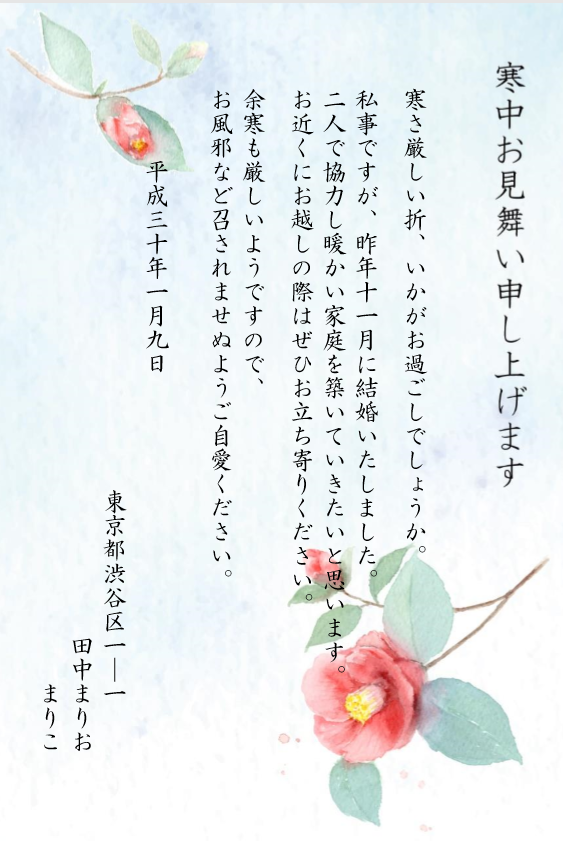 寒中お見舞い申し上げます
寒さ厳しい折、いかがお過ごしでしょうか。
私事ですが、昨年十一月に結婚いたしました。
二人で協力し暖かい家庭を築いていきたいと思います。
お近くにお越しの際はぜひお立ち寄りください。
余寒も厳しいようですので、
お風邪など召されませぬようご自愛ください。
平成三十年一月九日
東京都渋谷区一―一
田中まりお
まりこ